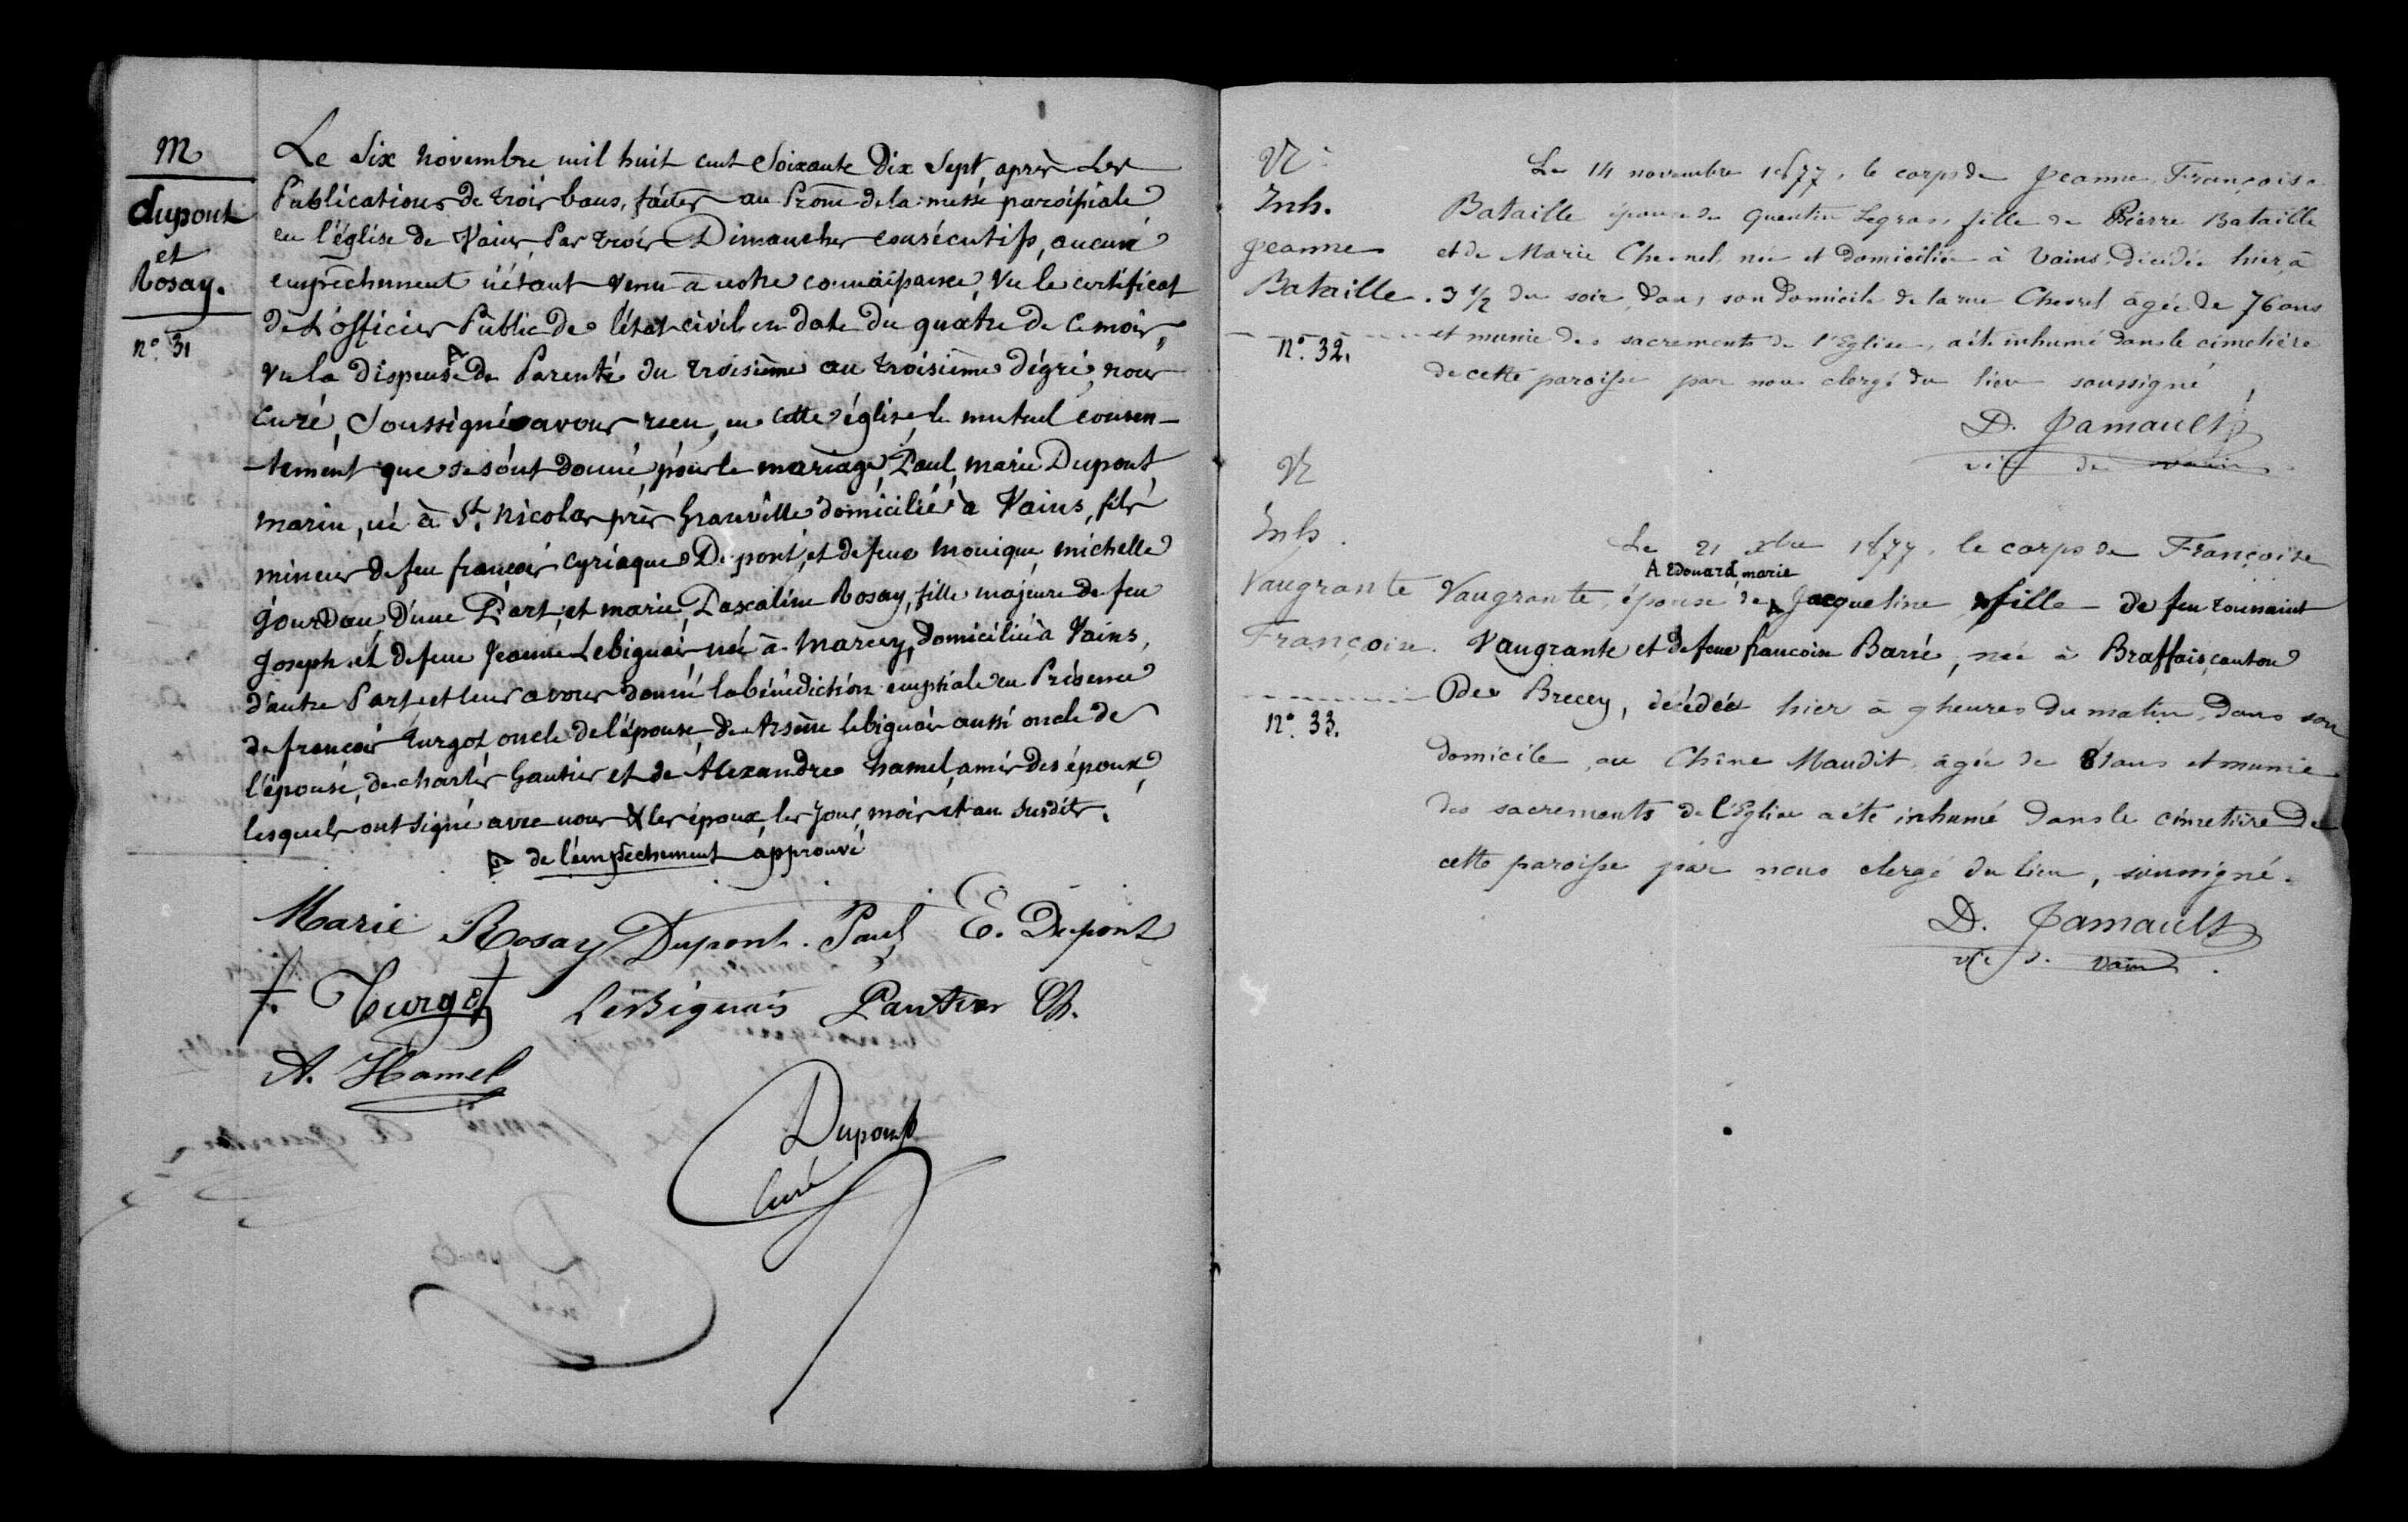 M
dupont
et
Rosay.
n° 31
Le Six Novembre mil huit cent Soixante Dix Sept, après Les
Publications de trois bans, faites au Prone de la messe paroissiale
en l'église de Vains, Par trois Dimanches consécutifs, aucun
empêchement n'étant venu à notre connaissance, Vu le certificat
de L'officier Public de l'état civil en date du quatre de ce mois,
Vu la dispense de Parenté du troisième au troisième dégré, nous
Curé, Soussigné avons recu, en cette église, le mutuel consen-
-tement que se sont donné, pour le mariage, Paul, marie Dupont,
marin, né à St. Nicolas près Granville domicilié à Vains, fils
mineur de feu françois Cyriaque Dupont, et de feue Monique, michelle
Jourdan, D'une Part, et marie, Pascaline Rosay, fille majeure de feu
Joseph et de feue Jeanne Lebiguais née à Marcey, Domiciliée à Vains,
d'autre Part et leur avons donné la bénédiction nuptiale en Présence
de françois Turgot, oncle de l'épouse, de Arsène lebiguais aussi oncle de
l'épouse, de charles Gautier et de Alexandre hamel, amis des époux,
lesquels ont signé avec nous & les époux, les Jour, mois et an susdits.
de l'empêchement approuvé
Marie Rosay Dupont. Paul E. Dupont
f. Turgot LeBiguais Gautier Ch.
A. Hamel
Dupont
Curé
Inh.
Jeanne
Bataille.
n°. 32.
Le 14 novembre 1877, le corps de Jeanne, Françoise
Bataille épouse de Quentin Legros, fille de Pierre Bataille
et de Marie Chesnel, née et domiciliée à Vains, décédée hier, à
3 1/2 du soir, dans son domicile de la rue Chesnel âgée de 76 ans
et munie des sacrements de l'Eglise, a été inhumé dans le cimetière
de cette paroisse par nous clergé du lieu soussigné
D. Jamault
vic de Vains
Inh.
Vaugrante
Françoise.
n°. 33.
Le 21 xbre 1877, le corps de Françoise
A Edouard, marie
Vaugrante, épouse de Jacqueline, fille de feu toussaint
Vaugrante et de feue francoise Barré, née à Braffais, canton
de Brecey, décédée hier à 9 heures du matin, dans son
domicile, au Chêne Maudit, âgée de 81 ans et munie
des sacrements de l'Eglise a été inhumé dans le cimetière de
cette paroisse par nous clergé du lieu, soussigné.
D. Jamault
vic d. Vains